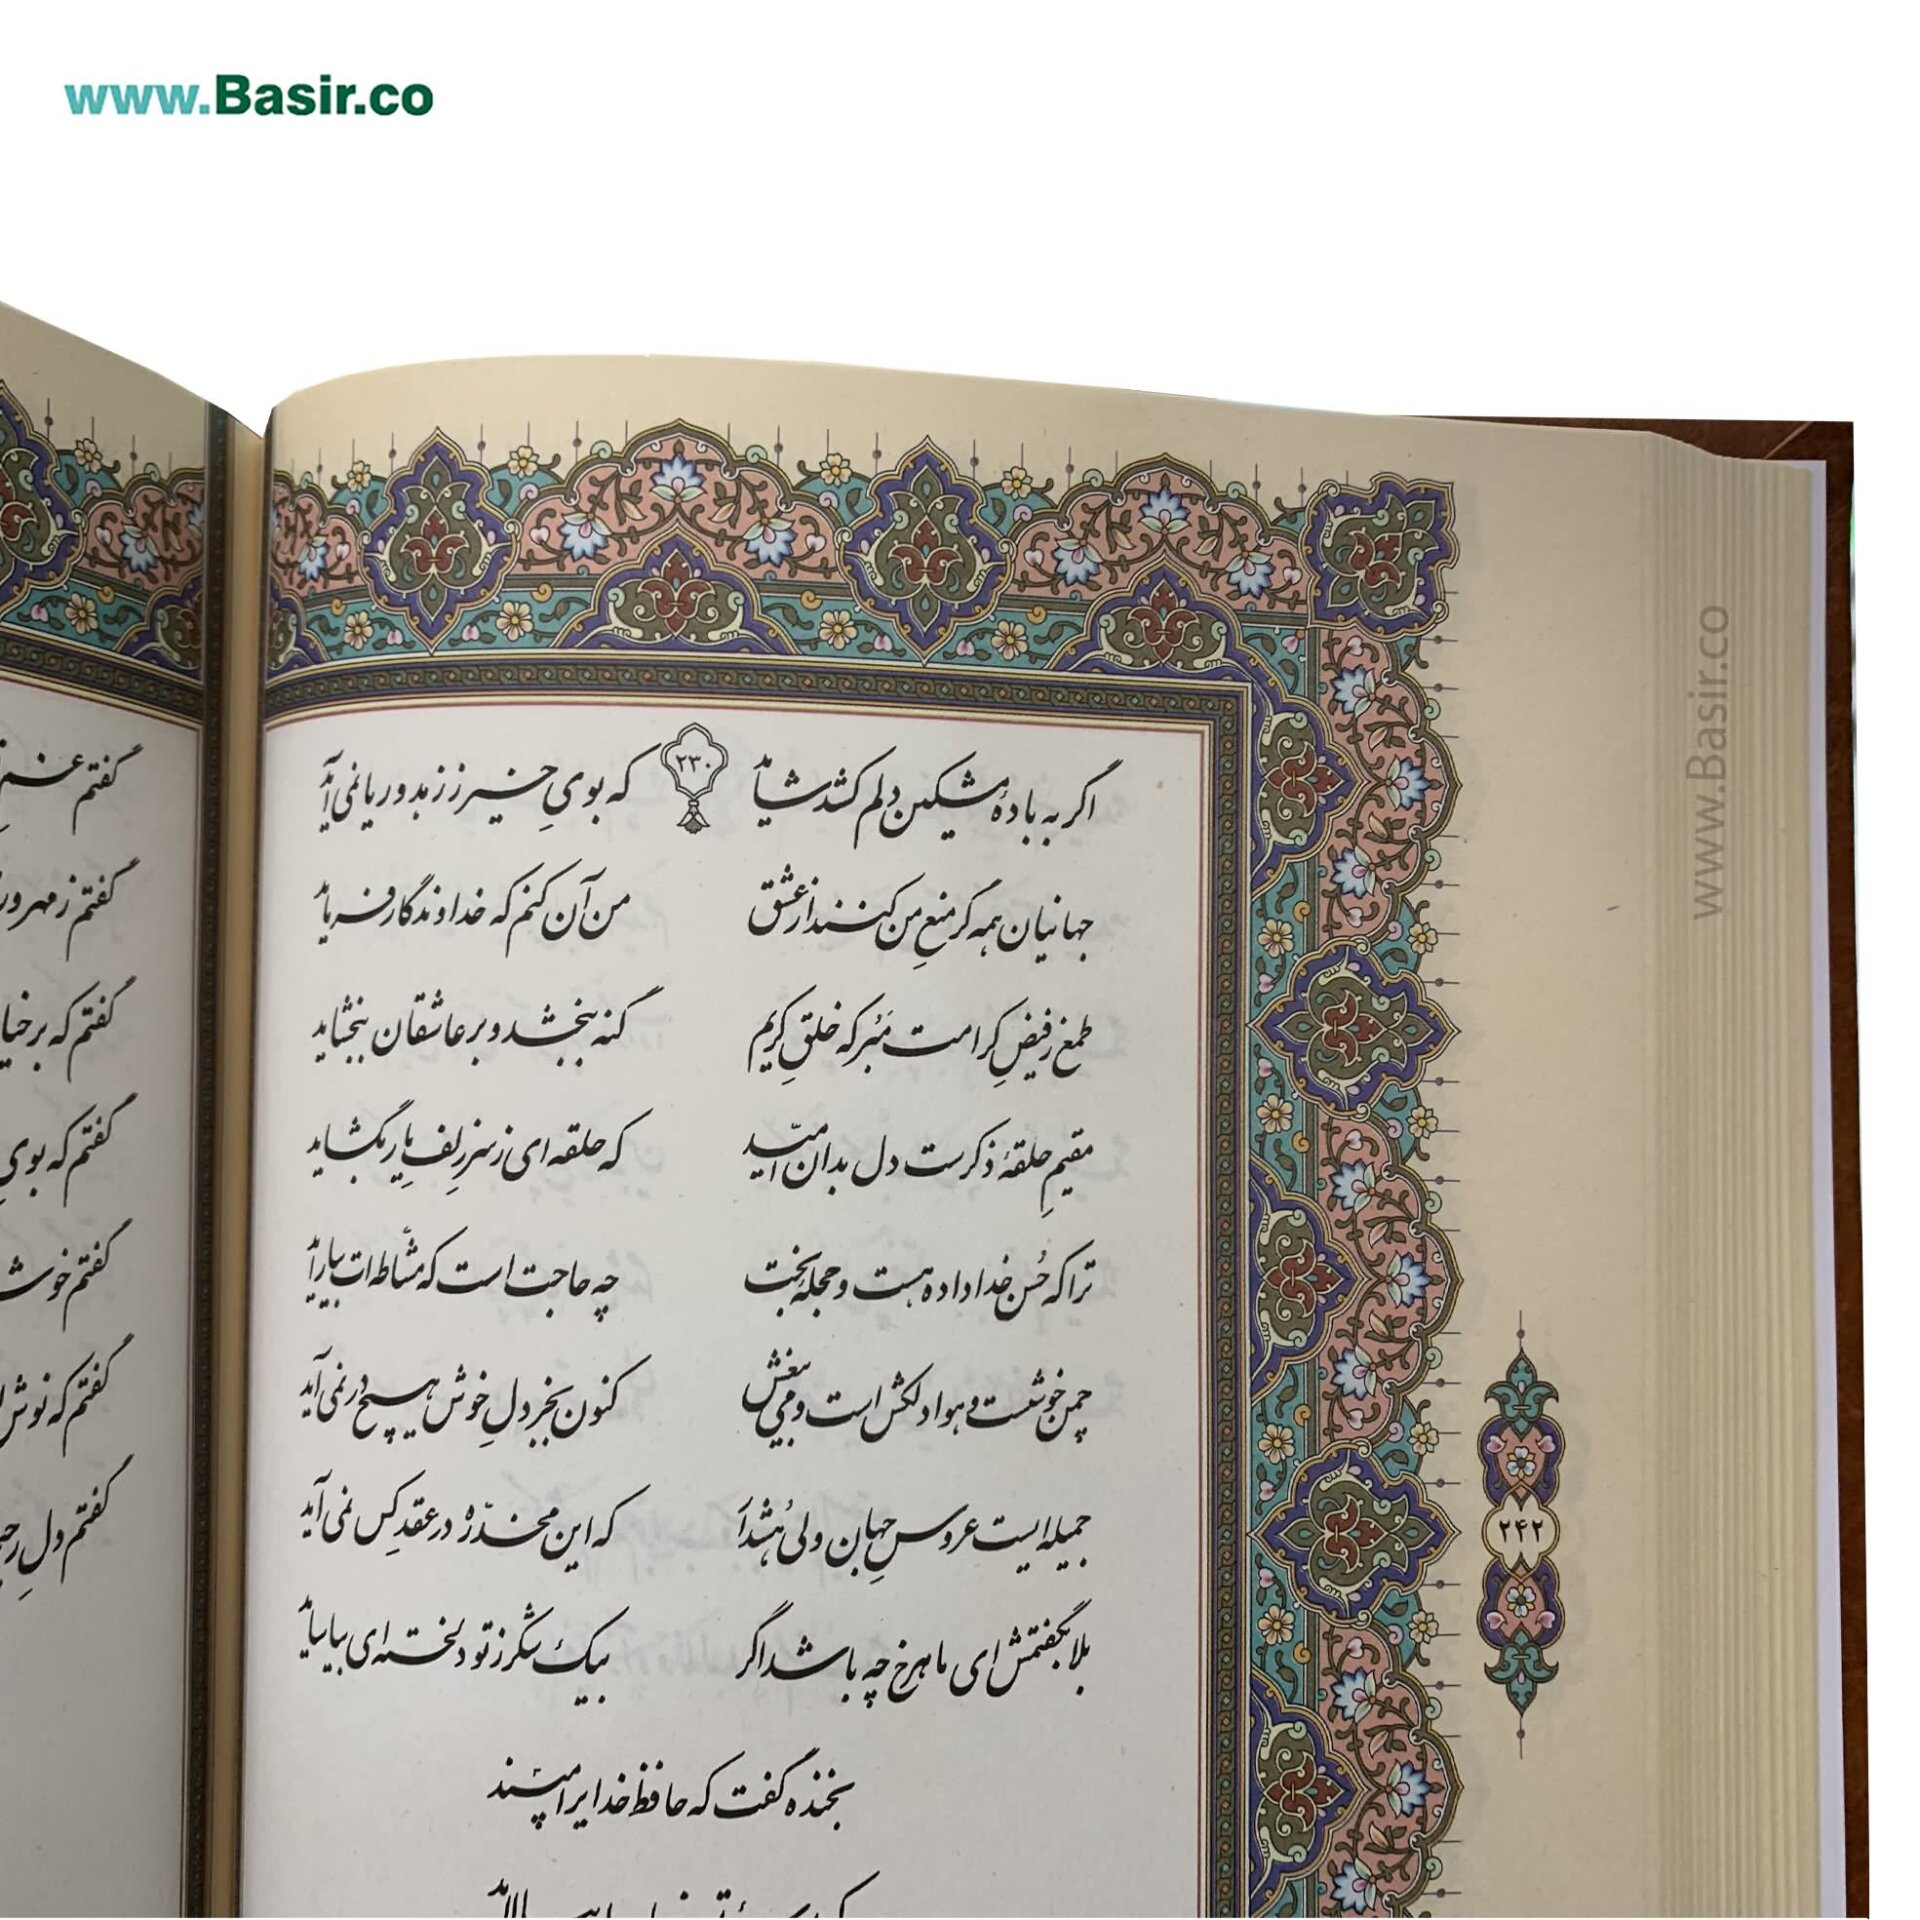 www.Basir.co
۲۳۰
اگر به بادهٔ مشکین دلم کشد شاید که بوی خیر ز زهد و ریا نمی‌آید
جهانیان همه گر منعِ من کنند از عشق من آن کنم که خداوندگار فرماید
طمع ز فیضِ کرامت مَبُر که خلقِ کریم گنه ببخشد و بر عاشقان ببخشاید
مقیمِ حلقهٔ ذکرست دل بدان امّید که حلقه‌ای ز سرِ زلفِ یار بگشاید
ترا که حُسنِ خداداده هست و حجلهٔ بخت چه حاجت است که مشّاطه‌ات بیاراید
چمن خوشست و هوا دلکش است و می بیغش کنون بجز دلِ خوش هیچ در نمی‌آید
جمیله‌ایست عروسِ جهان ولی هُشدار که این مخدّره در عقدِ کس نمی‌آید
بلابه گفتمش ای ماهرخ چه باشد اگر بیک شکر ز تو دلخسته‌ای بیاساید
بخنده گفت که حافظ خدایرا مپسند
۲۴۲
www.Basir.co
گفتم
گفتم ز مهر
گفتم که بر
گفتم که بوی
گفتم
گفتم که نوش
گفتم دلِ